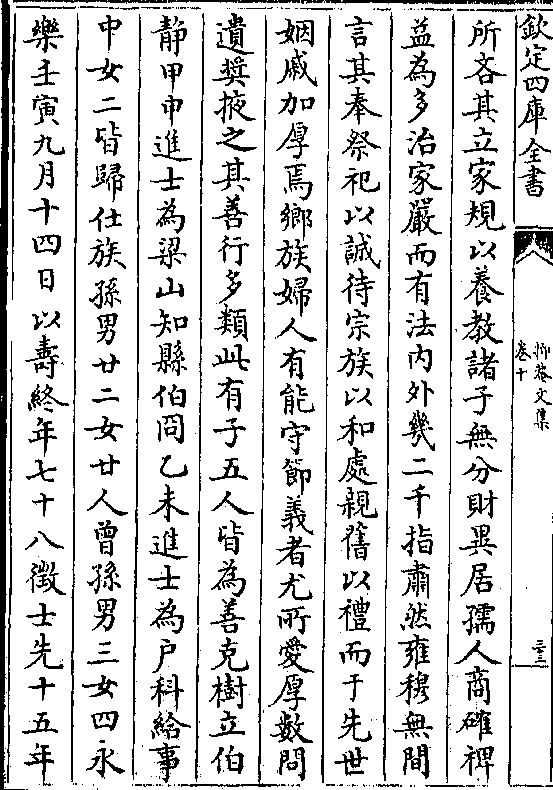 欽定四庫全書
抑菴文集
卷十
二十三
所吝其立家規以養教諸子無分財異居孺人商確裨
益為多治家嚴而有法内外幾二千指肅然雍穆無間
言其奉祭祀以誠待宗族以和處親舊以禮而于先世
姻戚加厚焉鄉族婦人有能守節義者尤所愛厚數問
遺奨掖之其善行多類此有子五人皆為善克樹立伯
静甲申進士為梁山知縣伯冏乙未進士為户科給事
中女二皆歸仕族孫男廿二女廿人曾孫男三女四永
樂壬寅九月十四日以壽終年七十八徵士先十五年